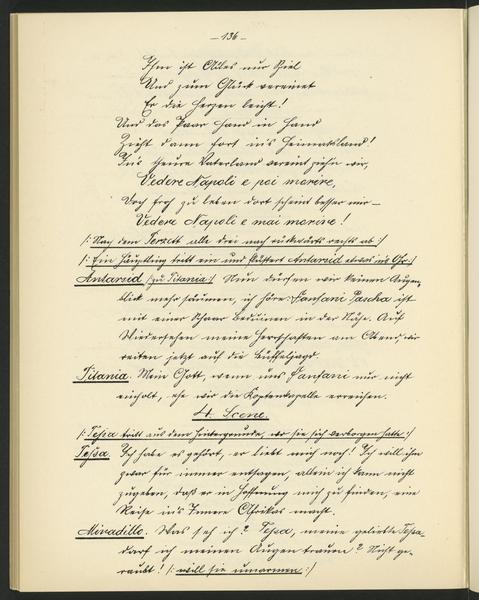 - 136 -
Ihm ist Alles nur Spiel
Und zum Glück vereinet
Er die Herzen leicht!
Und das Paar Hand in Hand
Zieht dann fort in's Heimatsland!
In's theure Vaterland vereint ziehn wir,
Vedere Napoli e poi morire,
Doch froh zu leben dort scheint besser mir –
Vedere Napoli e mai morire!
/: Nach dem Terzett alle drei nach rückwärts rechts ab :/
/: Ein Häuptling tritt ein und flüstert Antarsid etwas in's Ohr :/
Antarsid /: zu Titania :/ Nun dürfen wir keinen Augen-
blick mehr säumen, ich höre Fanfani Pascha ist
mit einer Schaar Beduinen in der Nähe. Auf
Wiedersehen meine Herrschaften am Abend, wir
reiten jetzt auf die Büffeljagd.
Titania. Mein Gott, wenn uns Fanfani nur nicht
einholt, ehe wir die Koptenkapelle erreichen.
4. Scene.
/: Tessa tritt aus dem Hintergrunde, wo sie sich verborgen hatte :/
Tessa. Ich habe es gehört, er liebt mich noch! Ich will ihm
zwar für immer entsagen, allein ich kann nicht
zugeben, daß er in Hoffnung mich zu finden, eine
Reise in's Innere Afrikas macht.
Miradillo. Was seh ich? Tessa, meine geliebte Tessa –
darf ich meinen Augen trauen? Nicht ge-
raubt! /: will sie umarmen :/